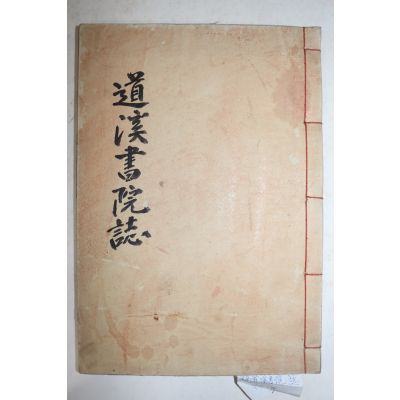 道溪書院誌